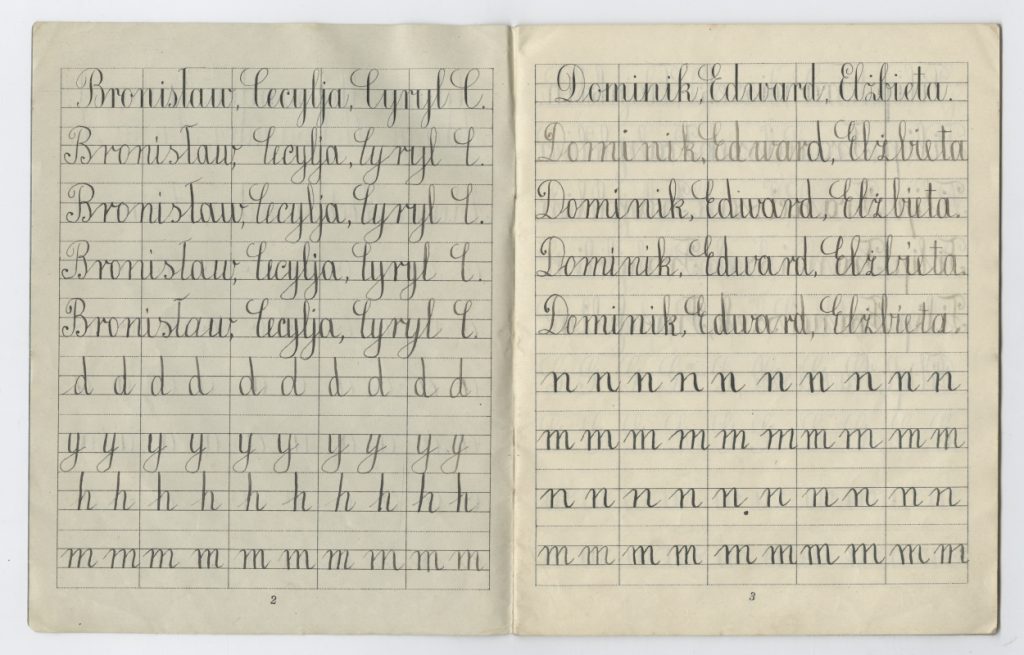 Bronisław, Cecylja, Cyryl C.
Bronisław, Cecylja, Cyryl C.
Bronisław, Cecylja, Cyryl C.
Bronisław, Cecylja, Cyryl C.
Bronisław, Cecylja, Cyryl C.
d d d d d d d d d d
y y y y y y y y y y
h h h h h h h h h h
m m m m m m m m m m
2
Dominik, Edward, Elżbieta.
Dominik, Edward, Elżbieta
Dominik, Edward, Elżbieta.
Dominik, Edward, Elżbieta.
Dominik, Edward, Elżbieta.
n n n n n n n n n n
m m m m m m m m m m
n n n n n n n n n n
m m m m m m m m m m
3